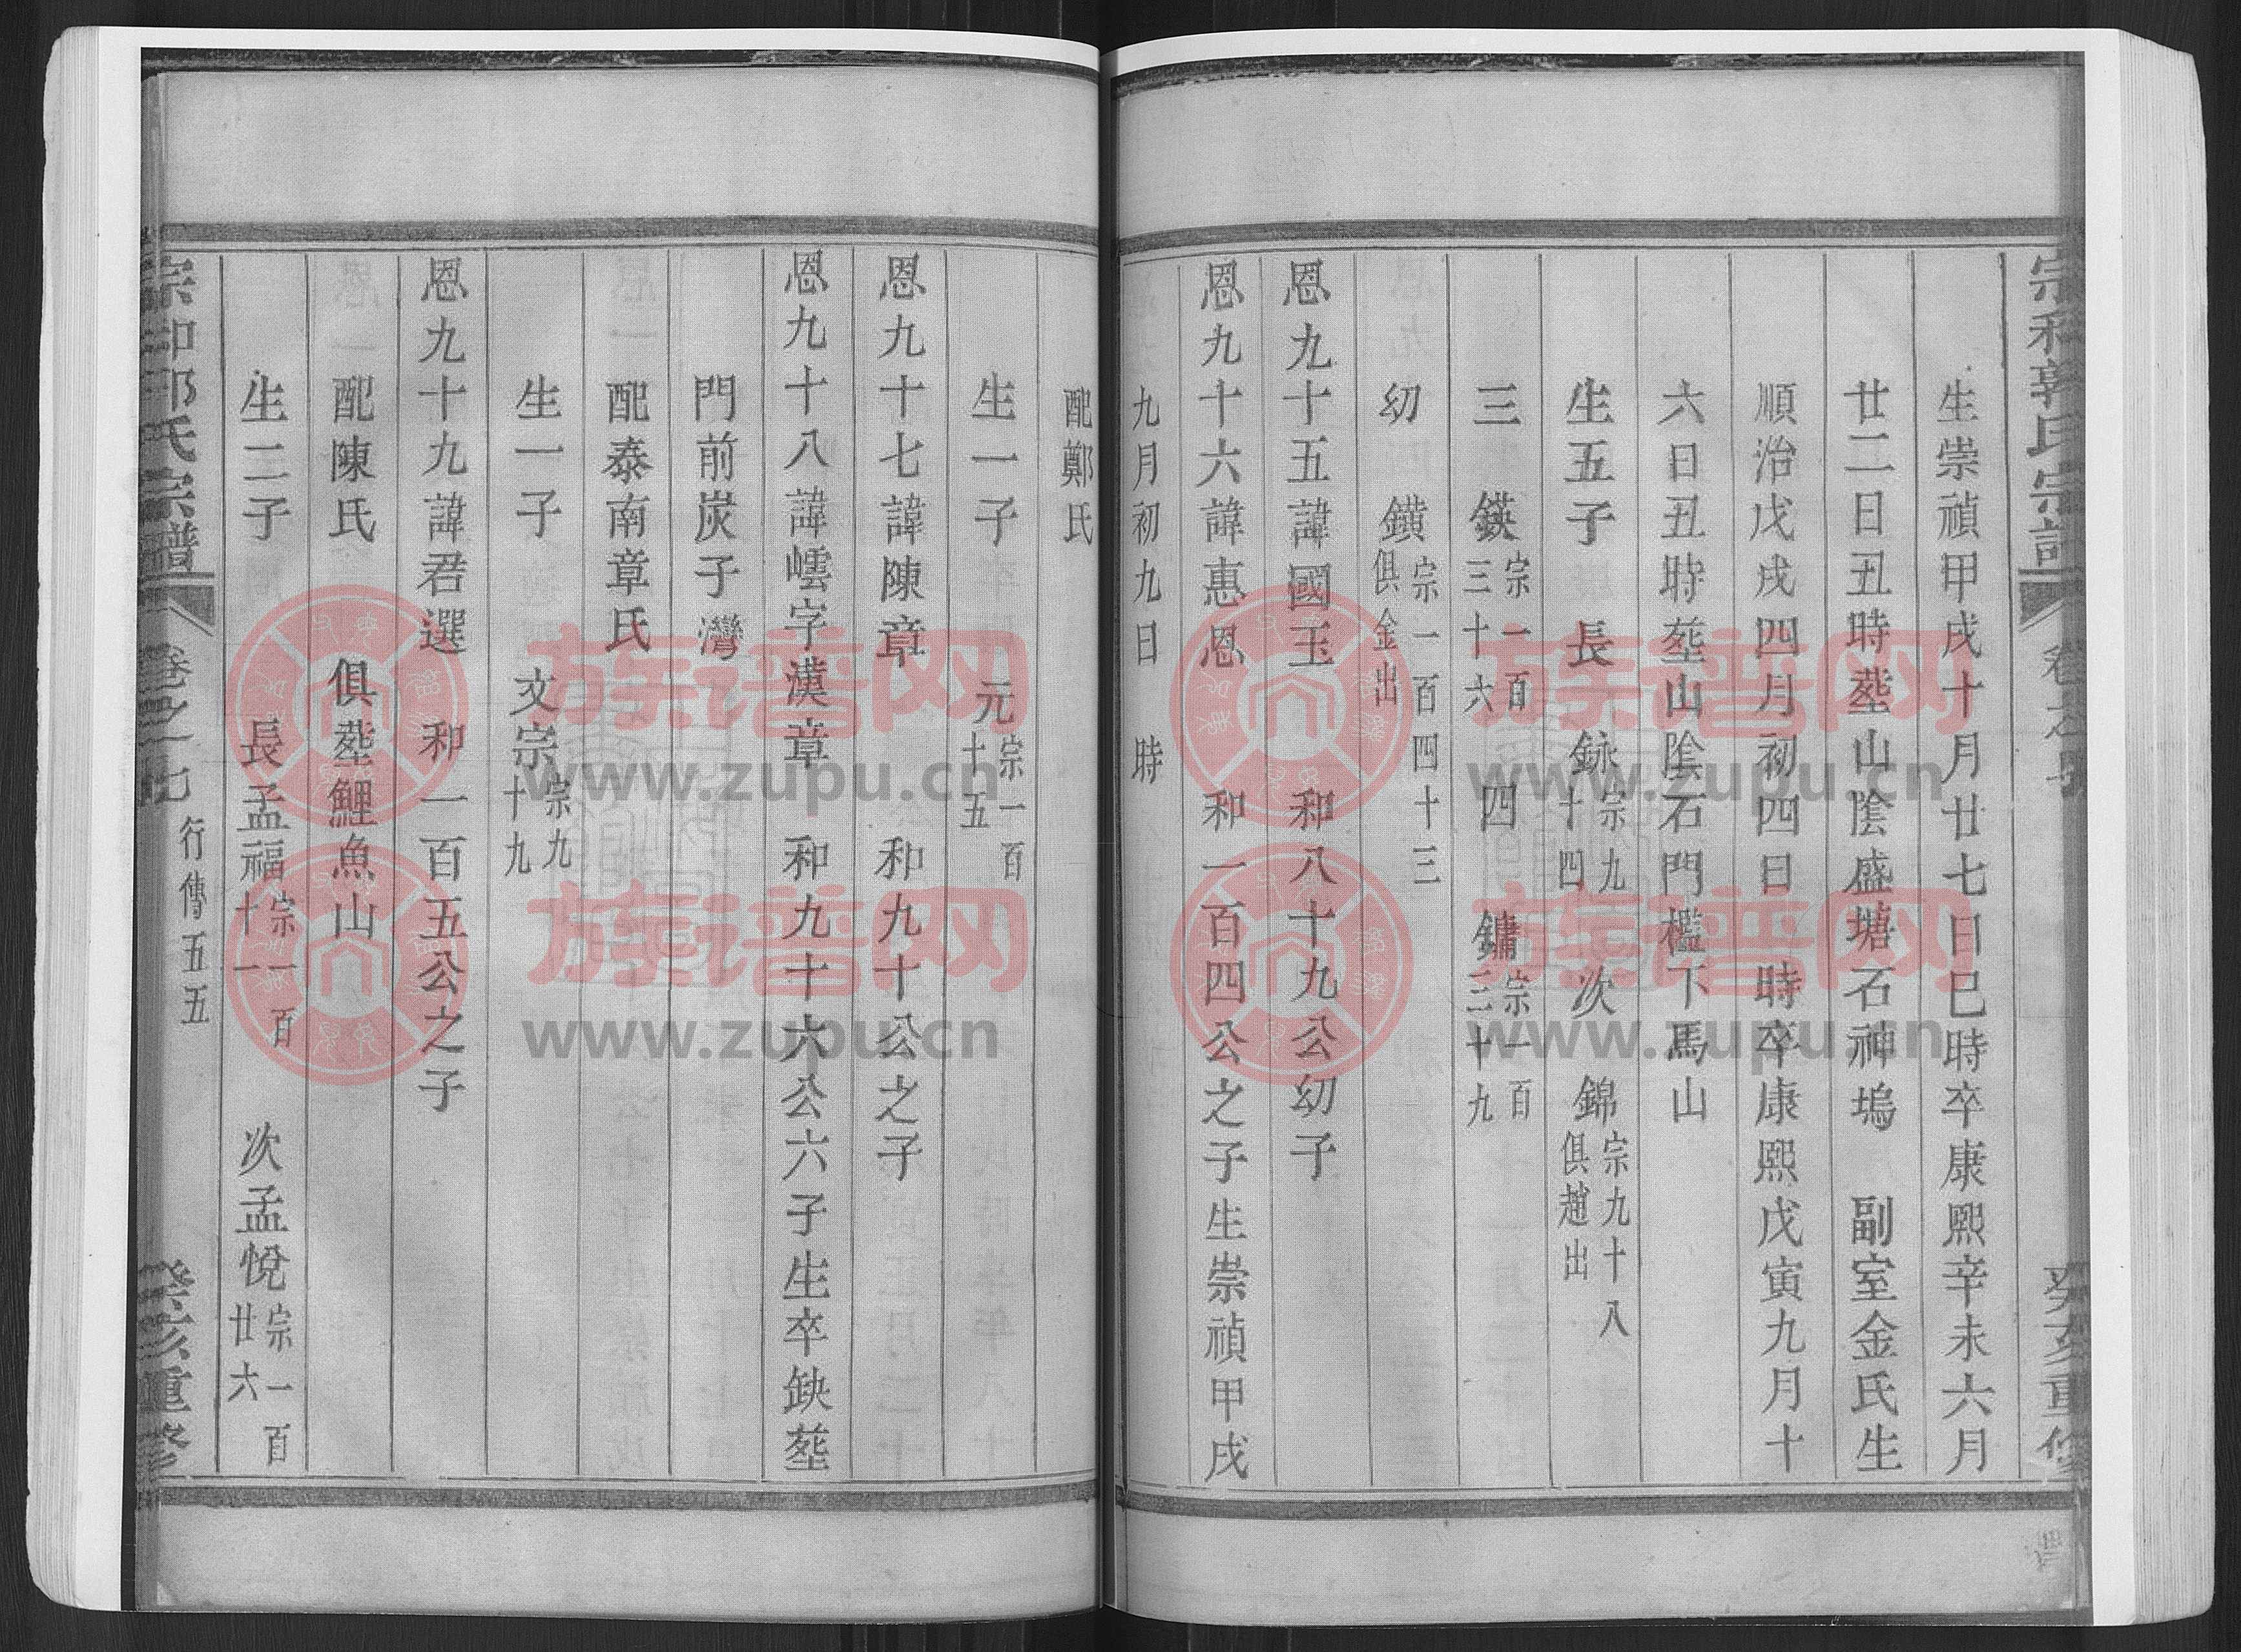 宗和郭氏宗譜
卷之
癸亥重修
生崇禎甲戌十月廿七日巳時卒康熙辛未六月
廿二日丑時塟山陰盛塘石神塢 副室金氏生
順治戊戌四月初四日 時卒康熙戊寅九月十
六日丑時塟山陰石門檻下馬山
生五子 長 銢宗九十四 次 錦宗九十八俱趙出
三 鍈宗一百三十六 四 鏞宗一百三十九
幼 鐄宗一百四十三俱金出
恩九十五諱國玉 和八十九公幼子
恩九十六諱惠恩 和一百四公之子生崇禎甲戌
九月初九日 時
配鄭氏
生一子 元宗一百十五
恩九十七諱陳章 和九十公之子
恩九十八諱嶿字漢章 和九十六公六子生卒缺塟
門前炭子灣
配泰南章氏
生一子 文宗宗九十九
恩九十九諱君選 和一百五公之子
配陳氏 俱塟鯉魚山
生二子 長孟福宗一百十一 次孟悅宗一百廿六
宗和郭氏宗譜
卷之一七
行傳五五
癸亥重修
族谱网
www.zupu.cn
族谱网
www.zupu.cn
族谱网
www.zupu.cn
族谱网
www.zupu.cn